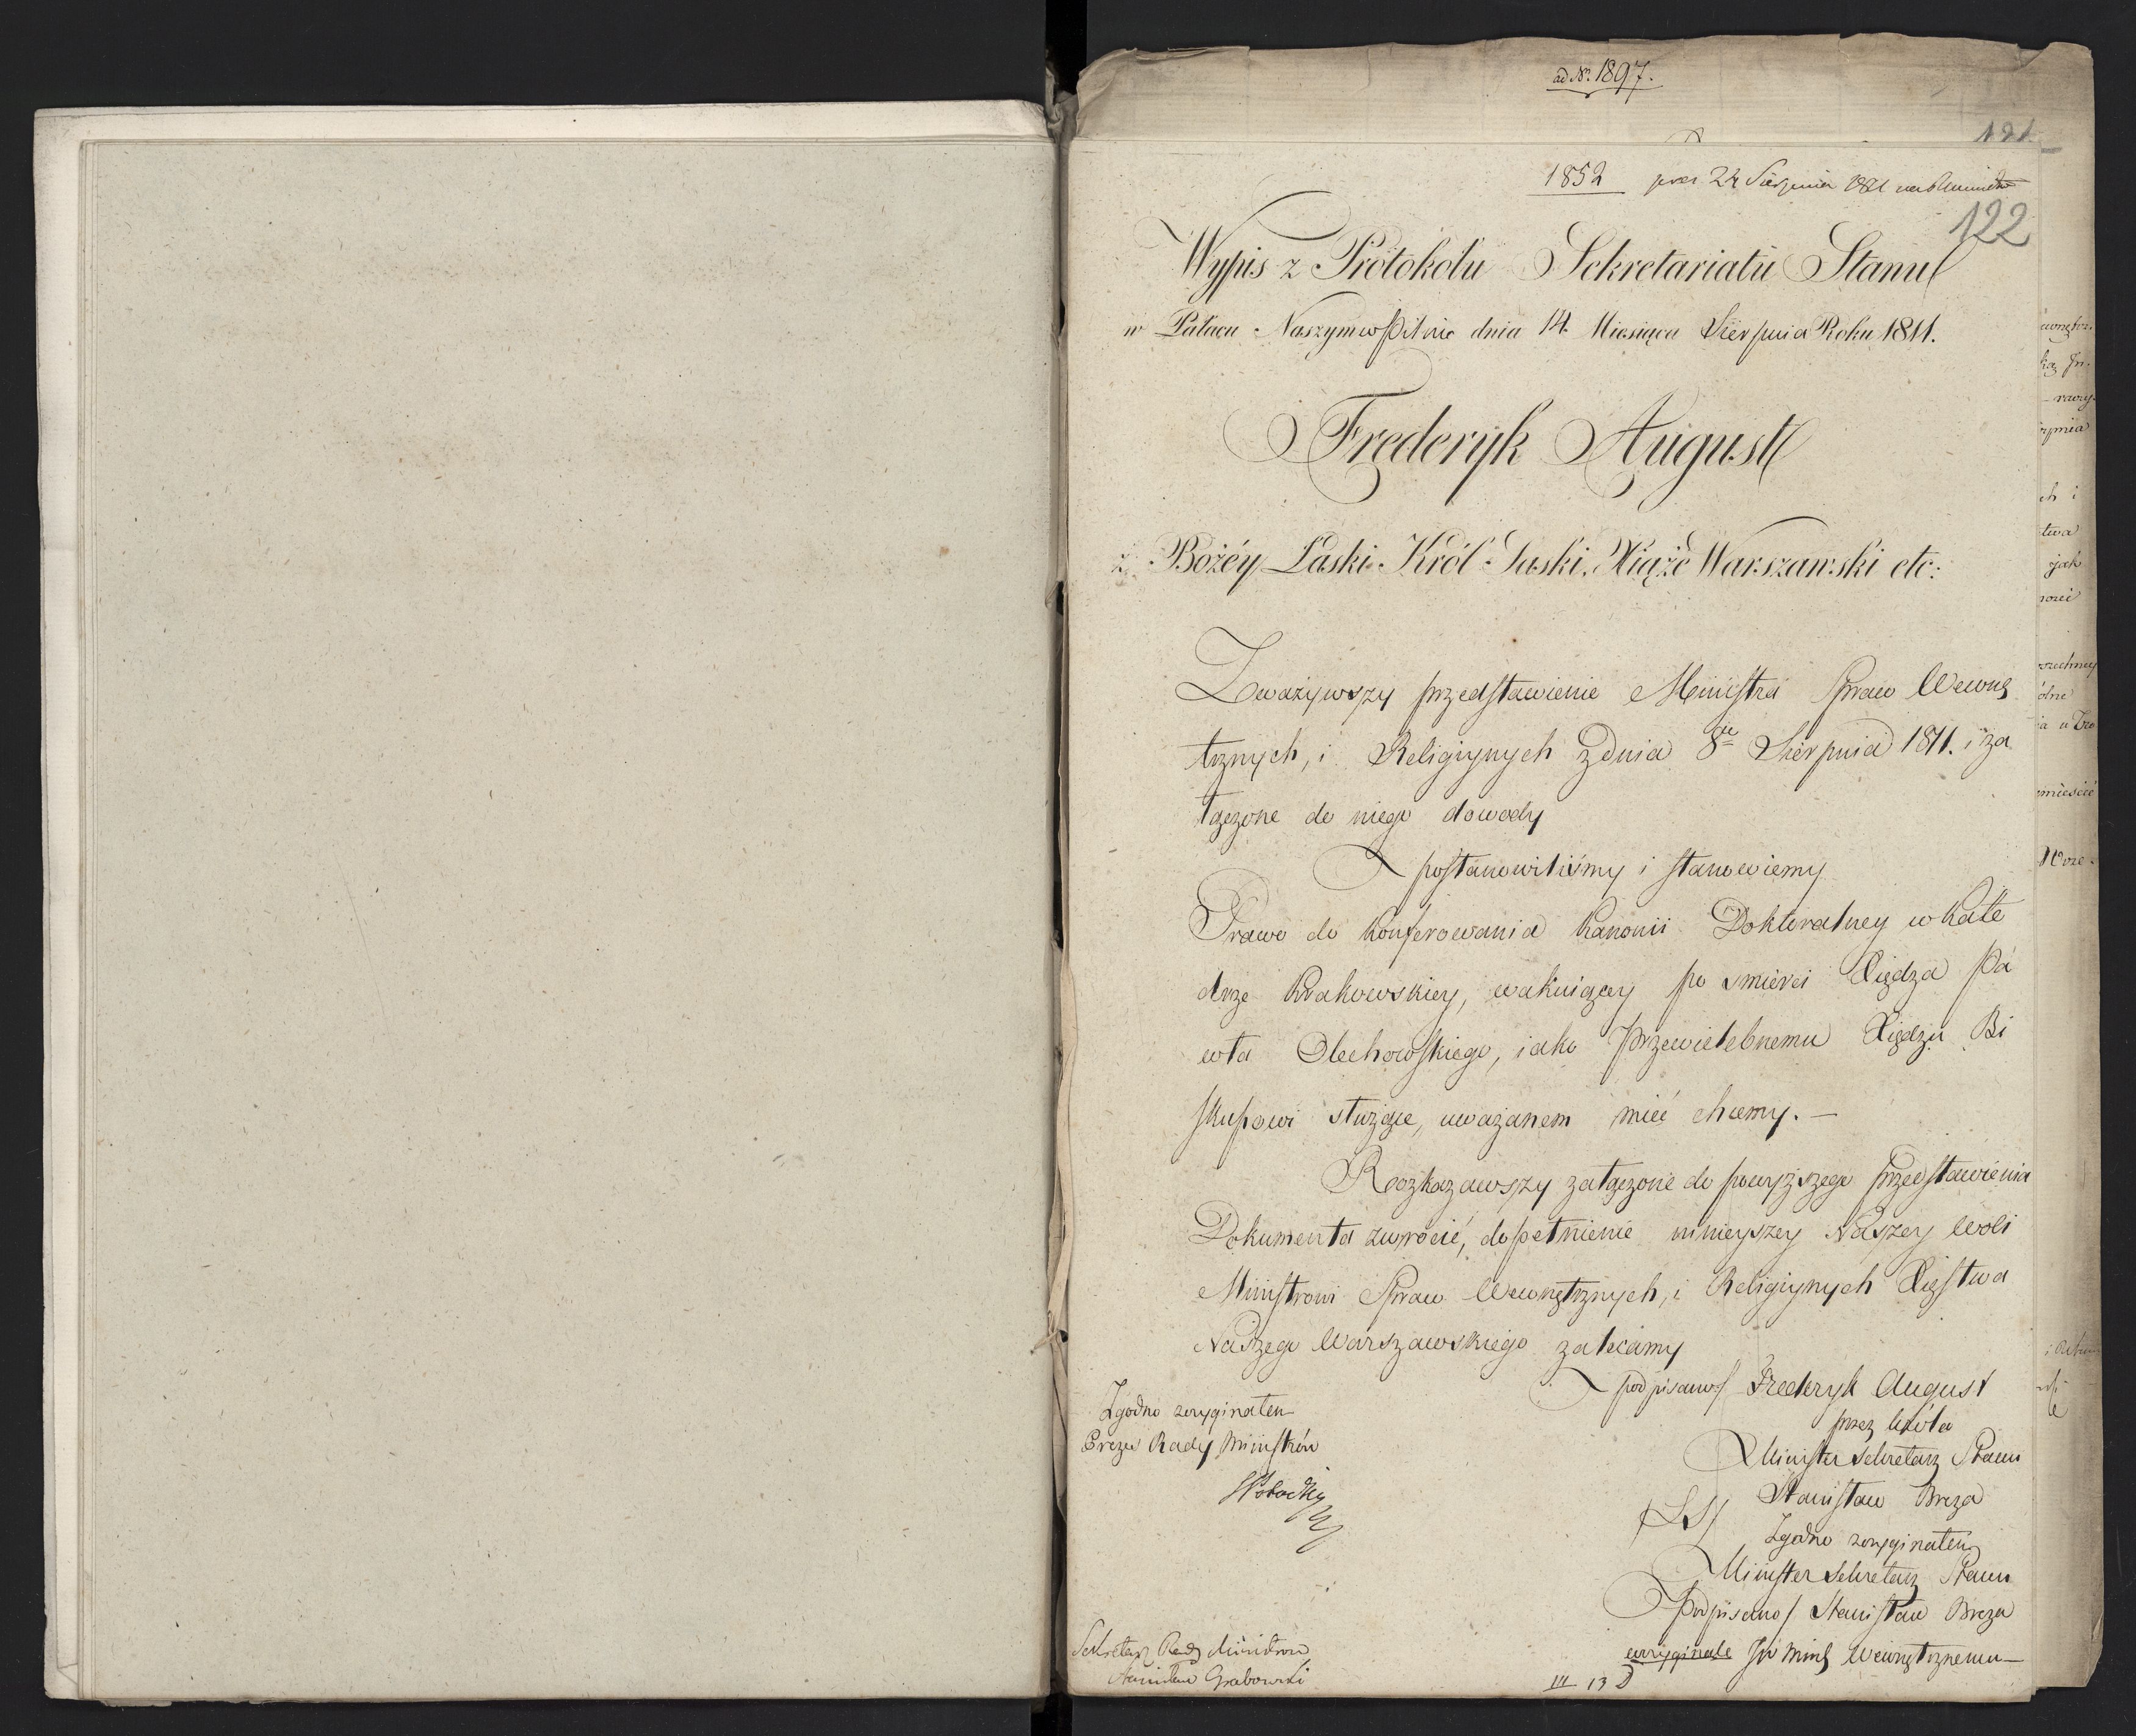 ad Nr. 1897.
121
1852 prez 24 Sierpnia 1811
122
Wypis z Protokołu Sekretariatu Stanu
w Pałacu Naszym w Pilnic dnia 14. Miesiąca Sierpnia Roku 1811.
Frederyk August
z Bożéy Łaski Król Saski, Xiąże Warszawski etc:
Zważywszy przedstawienie Ministra Spraw Wewnę
trznych, i Religiynych z dnia 8go Sierpnia 1811. i za
łączone do niego dowody
postanowiliśmy i stanowiemy
Prawo do konferowania Kanonii Doktoralney w Kate
drze Krakowskiey, wakuiącey po smierci Xiędza Pa
wła Olechowskiego, iako Przewielebnemu Xiędzu Bi
skupowi służące, uważanem mieć chcemy. —
Rozkazawszy załączone do powyższego przedstawienia
Dokumenta zwrócić, dopełnienie ninieyszey Naszey Woli
Ministrowi Spraw Wewnętrznych, i Religiynych Xięstwa
Naszego Warszawskiego zalecamy
podpisano/ Frederyk August
przez Króla
Minister Sekretarz Stanu
Stanisław Breza
/LS/
Zgodno z oryginałem
Minister Sekretarz Stanu
/podpisano/ Stanisław Breza
w oryginale JW Minis Wewnętrznemu —
Zgodno z oryginałem
Prezes Rady Ministrów
Sekretarz Rady Ministrów
Stanisław Grabowski
III 13 D